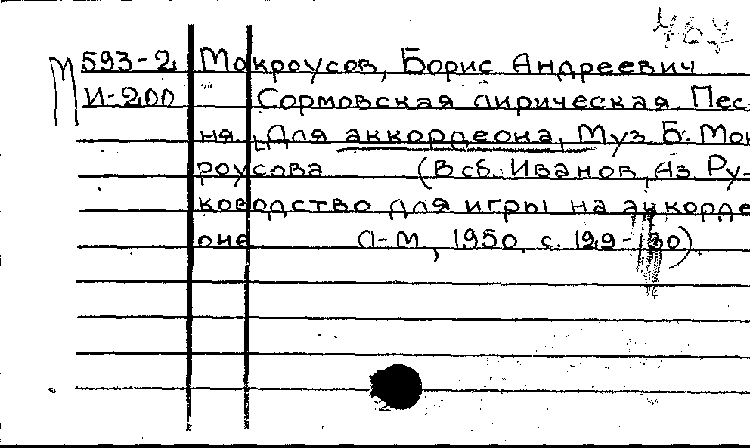 593-2 Мокроусов, Борис Андреевич
И-200 Сормовская лирическая. Пес-
ня. Для аккордеона. Муз. Б. Мок
роусова (В сб: Иванов, Аз. Ру-
ководство для игры на аккорде
оне Л-М., 1950. с. 129-130)